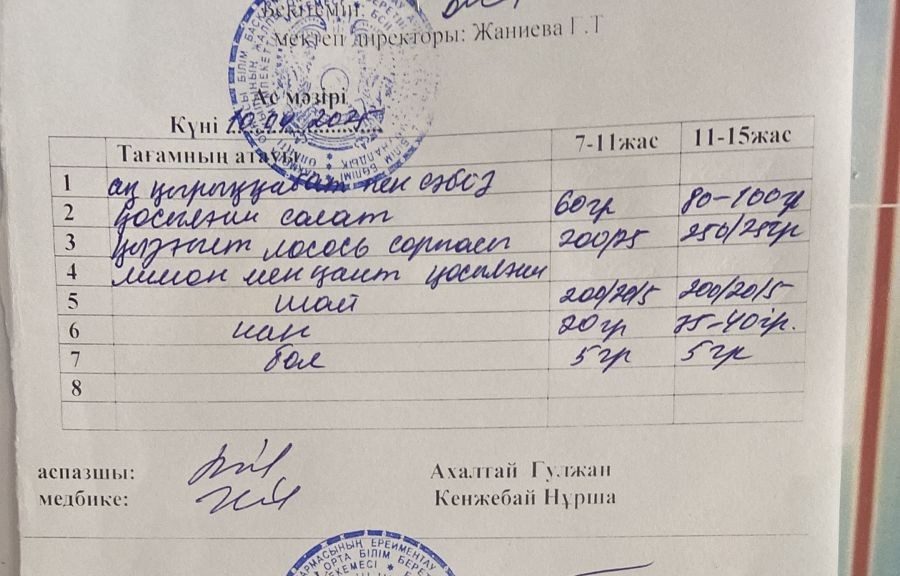 Бекітемін:
мектеп директоры: Жаниева Г.Т
Ас мәзірі
Күні 10.04.2025
Тағамның атауы 7-11жас 11-15жас
1 ақ қырыққабат пен сәбіз
2 қосылған салат 60гр 80-100гр
3 қызғылт лосось сорпасы 200/25 250/25гр
4 лимон мен қант қосылған
5 шай 200/20/5 200/20/5
6 нан 20гр 35-40гр.
7 бал 5гр 5гр
8
аспазшы: Ахалтай Гулжан
медбике: Кенжебай Нұрша
ОРТА БІЛІМ БЕРЕТІН